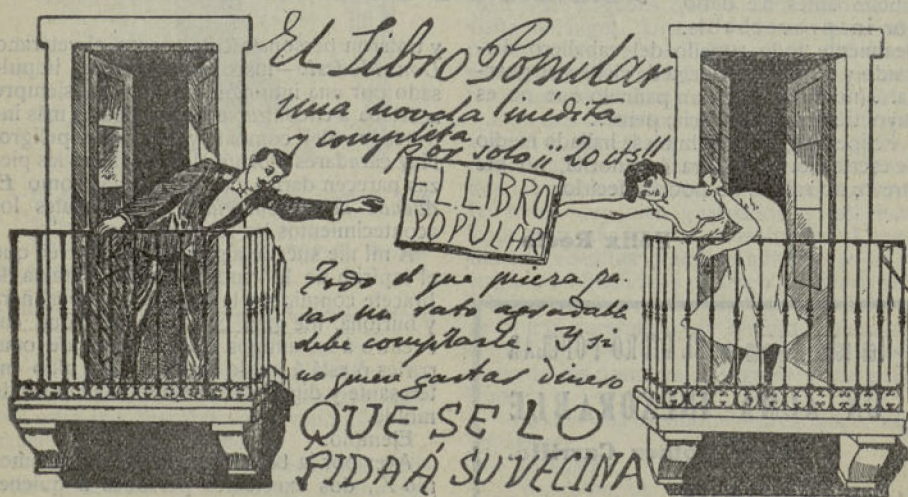 El Libro Popular
una novela inedita
y completa
por solo ¡¡20 cts!!
EL LIBRO
POPULAR
Todo el que quiera pa-
sar un rato agradable
debe comprarle. Y si
no quiere gastar dinero
QUE SE LO
PIDA Á SU VECINA